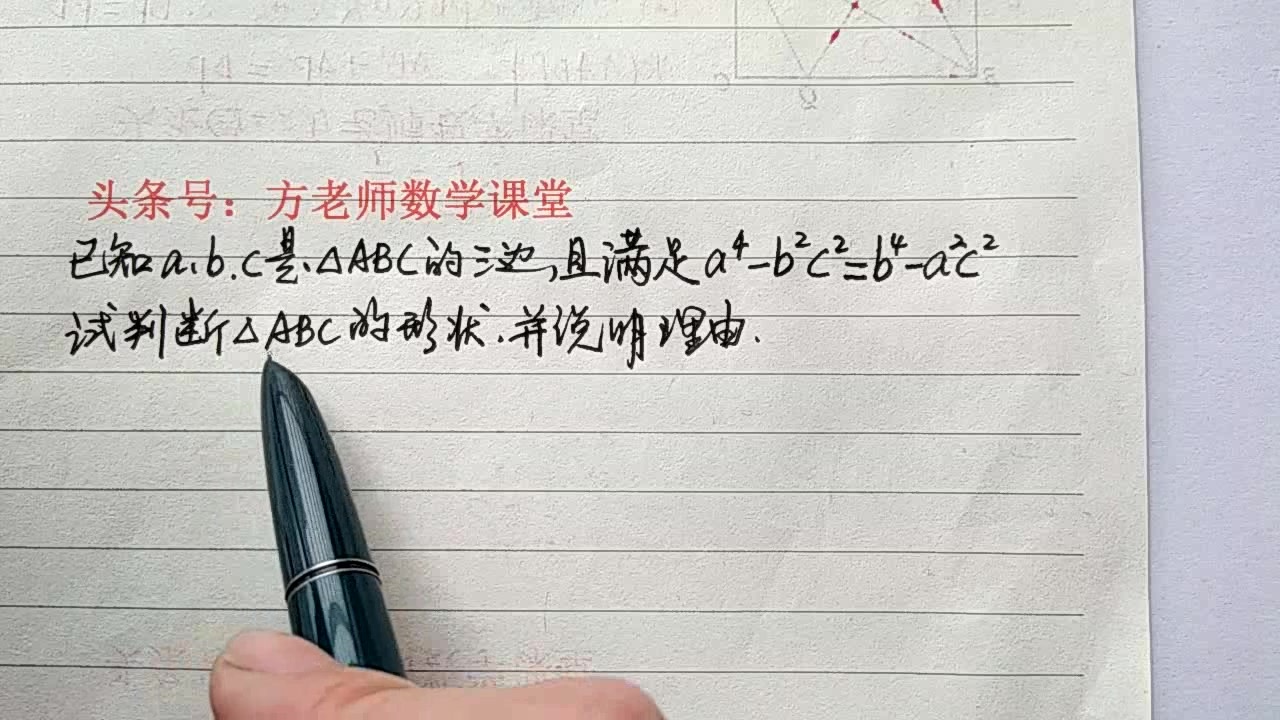 头条号：方老师数学课堂
已知a、b、c是△ABC的三边,且满足a⁴-b²c²=b⁴-a²c²
试判断△ABC的形状.并说明理由.